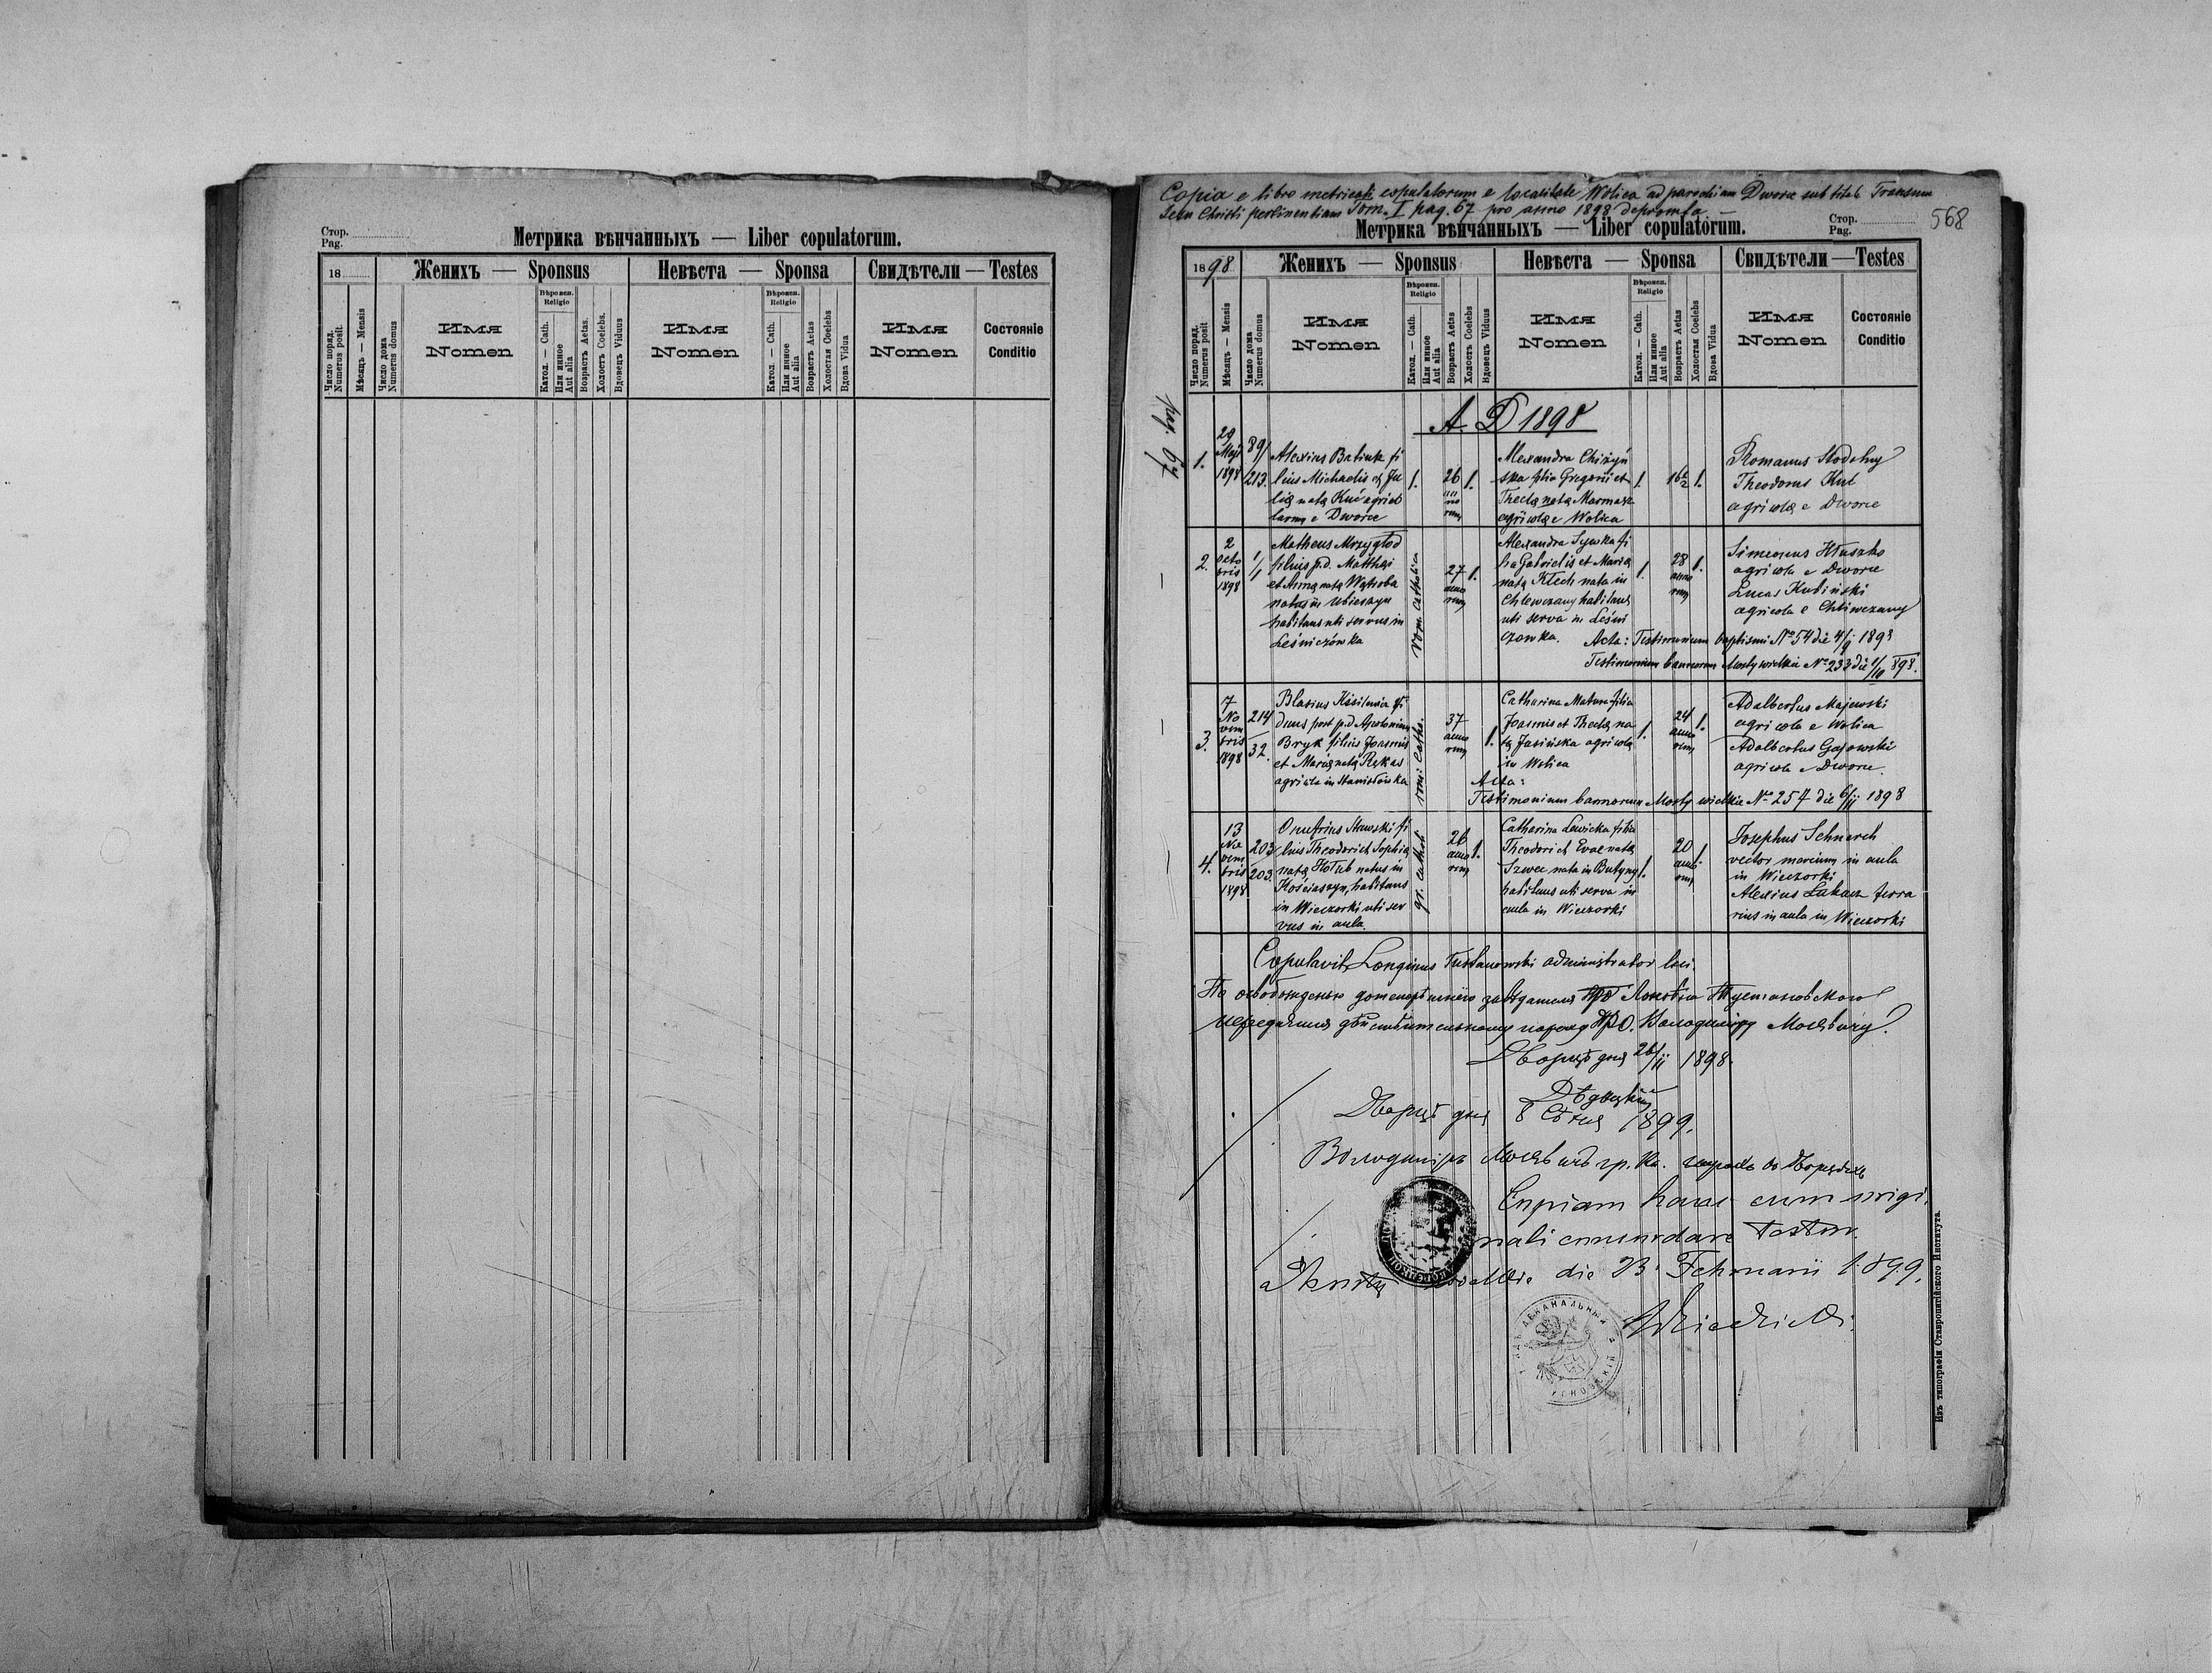 Стор.
Pag.
Метрика вѣнчанныхъ — Liber copulatorum.
18
Женихъ — Sponsus
Невѣста — Sponsa
Свидѣтели — Testes
Число поряд.
Numerus posit.
Мѣсяць — Mensis
Число дома
Numerus domus
Имя
Nomen
Вѣроисп.
Religio
Катол. — Cath.
Или инное
Aut alia
Возрастъ Aetas.
Холостъ Coelebs.
Вдовецъ Viduus
Имя
Nomen
Вѣроисп.
Religio
Катол. — Cath.
Или инное
Aut alia
Возрастъ Aetas
Холостая Coelebs
Вдова Vidua
Имя
Nomen
Состояніе
Conditio
Copia e libro copulatorum e localitate Wolica ad parochiam Dworce sub titulo Transum
Jesu Christi pertinentiam Tom. I pag. 67 pro anno 1898 deprompta
568
Метрика вѣнчанныхъ — Liber copulatorum.
Стор.
Pag.
1898
Женихъ — Sponsus
Невѣста — Sponsa
Свидѣтели — Testes
Число поряд.
Numerus posit
Мѣсяць — Mensis
Число дома
Numerus domus
Имя
Nomen
Вѣроисп.
Religio
Катол. — Cath.
Или инное
Aut alia
Возрастъ Aetas
Холостъ Coelebs
Вдовецъ Viduus
Имя
Nomen
Вѣроисп.
Religio
Катол. — Cath.
Или инное
Aut alia
Возрастъ Aetas
Холостая Coelebs
Вдова Vidua
Имя
Nomen
Состояніе
Conditio
pag. 67
A. D 1898
1.
29
Maji
1898
89/
213.
Alexius Batiuk fi
lius Michaelis et Ju
lię natę Kuć agricol
larum e Dworce
1.
26
anno
rum
1.
Alexandra Chizyń
ska filia Gregorii et
Theclę natę Marmasz
agricolę e Wolica
1.
16½
1.
Romanus Stodolny
Theodorus Kul
agricolę e Dworce
2.
2
octo
bris
1898
1/1
Matheus Mrzygłod
filius p.d. Matthęi
et Annę natę Wątroba
natus in Ubieszyn
habitans uti servus in
Leśniczówka
rom. catholica
27
anno
rum
1.
Alexandra Sywka fi
lia Gabrielis et Marię
natę Klech nata in
Chlewczany habitans
uti serva in Leśni
czowka.
1.
28
anno
rum
1.
Simeonus Hłuszko
agricola e Dworce
Lucas Kubiński
agricola e Chliwczany
Acta: Testimonium baptismi No 54 die 4/9 1898
Testimonium bannorum Mosty wielkie No 233 die 1/10 898.
3.
7
No
vem
bris
1898
214
32.
Blasius Kisilewicz vi
duus post p.d. Apolonium
Bryk filius Joannis
et Marię natę Rękas
agricola in Stanisłówka
rom: catho.
37
anno
rum
1.
Catharina Matura filia
Joannis et Theclę na
tę Jasińska agricolę
in Wolica
1.
24
anno
rum
1.
Adalbertus Majewski
agricola e Wolica
Adalbertus Gajowski
agricola e Dworce.
Acta:
Testimonium bannorum Mosty wielkie No 257 die 6/11 1898
4.
13
No
vem
bris
1898
203/
203.
Onufrius Stawski fi
lius Theodori et Sophię
natę Hołub natus in
Kościaszyn, habitans
in Wieczorki uti ser
vus in aula.
gr. cathol
26
anno
rum
1.
Catharina Lewicka filia
Theodori et Evae natę
Szwec nata in Butyny
habitans uti serva in
aula in Wieczorki
1.
20
anno
rum
1.
Josephus Schnerch
vector mercium in aula
in Wieczorki
Alexius Łukacz ferra
rius in aula in Wieczorki
Copulavit Longinus Tustanowski administrator loci.
По освобожденью дотеперѣшнего завѣдателя Тустановского
передания дѣйствительному пароху Володимиру Мосѣвичу.
Дворцѣ дня 26/11 1898.
Дворцѣ дня 8 Сѣчня 1899.
Володимиръ Мосѣвичъ гр. к. парохъ въ Дворцяхъ
Copiam hanc cum origi
nali concordare testor.
die 23 Februarii 1899.
Изъ типографіи Ставропигійского Института.